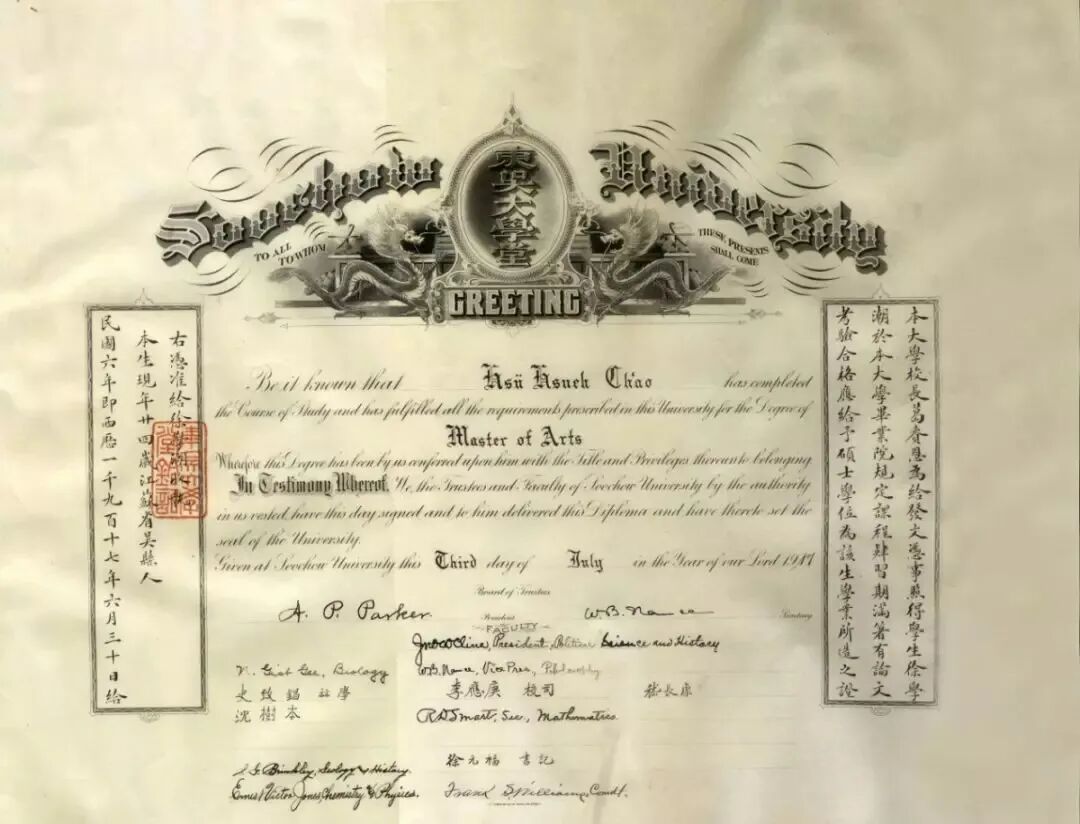 Soochow University
東吳大學堂
TO ALL TO WHOM
THESE PRESENTS SHALL COME
GREETING
本大學校長葛賚恩為給發文憑事照得學生徐學
潮於本大學畢業院規定課程肄習期滿著有論文
考驗合格應給予碩士學位為該生學業所造之證
Be it known that Hsü Hsueh Ch'ao has completed
the Course of Study and has fulfilled all the requirements prescribed in this University for the Degree of
Master of Arts
Wherefore this Degree has been by us conferred upon him with the Title and Privileges thereunto belonging
In Testimony Whereof, We, the Trustees and Faculty of Soochow University by the authority
in us vested, have this day signed and to him delivered this Diploma and have thereto set the
seal of the University.
Given at Soochow University this Third day of July in the Year of our Lord 1917
Board of Trustees
A. P. Parker President W.B. Nance Secretary
FACULTY
Jno W Cline, President, Political Science and History
N. Gist Gee, Biology W.B. Nance, Vice Pres., Philosophy
李應庚 校司
沈樹本 R D Smart, Sec., Mathematics
徐元福 書記
S. G. Brinkley, Geology & History
Ernest Victor Jones, Chemistry & Physics. Frank S. Williams, Comdt.
右憑准給徐學潮收執
本生現年廿四歲江蘇省吳縣人
民國六年即西曆一千九百十七年六月三十日給